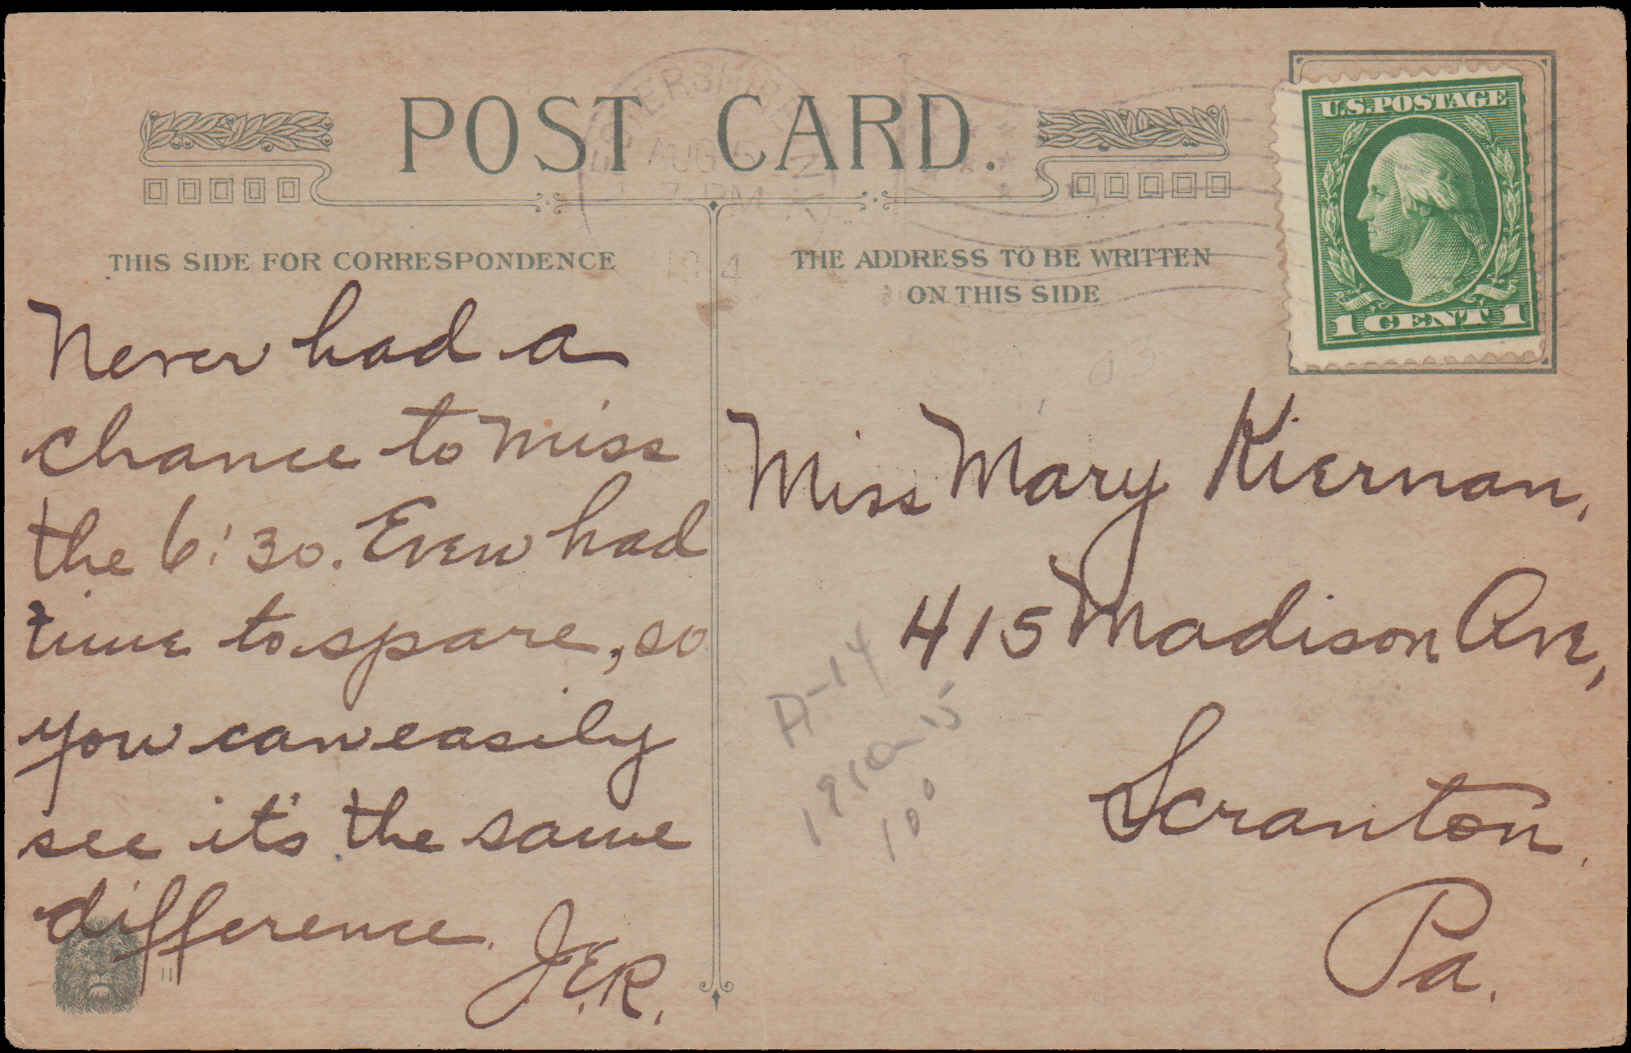 POST CARD.
AUG 6
7 PM
THIS SIDE FOR CORRESPONDENCE
THE ADDRESS TO BE WRITTEN
ON THIS SIDE
U.S.POSTAGE
1 CENT 1
Never had a
chance to miss
the 6:30. Even had
time to spare, so
you can easily
see it's the same
difference.
J.E.R.
Miss Mary Kiernan,
415 Madison Ave,
Scranton.
Pa.
A-14
100